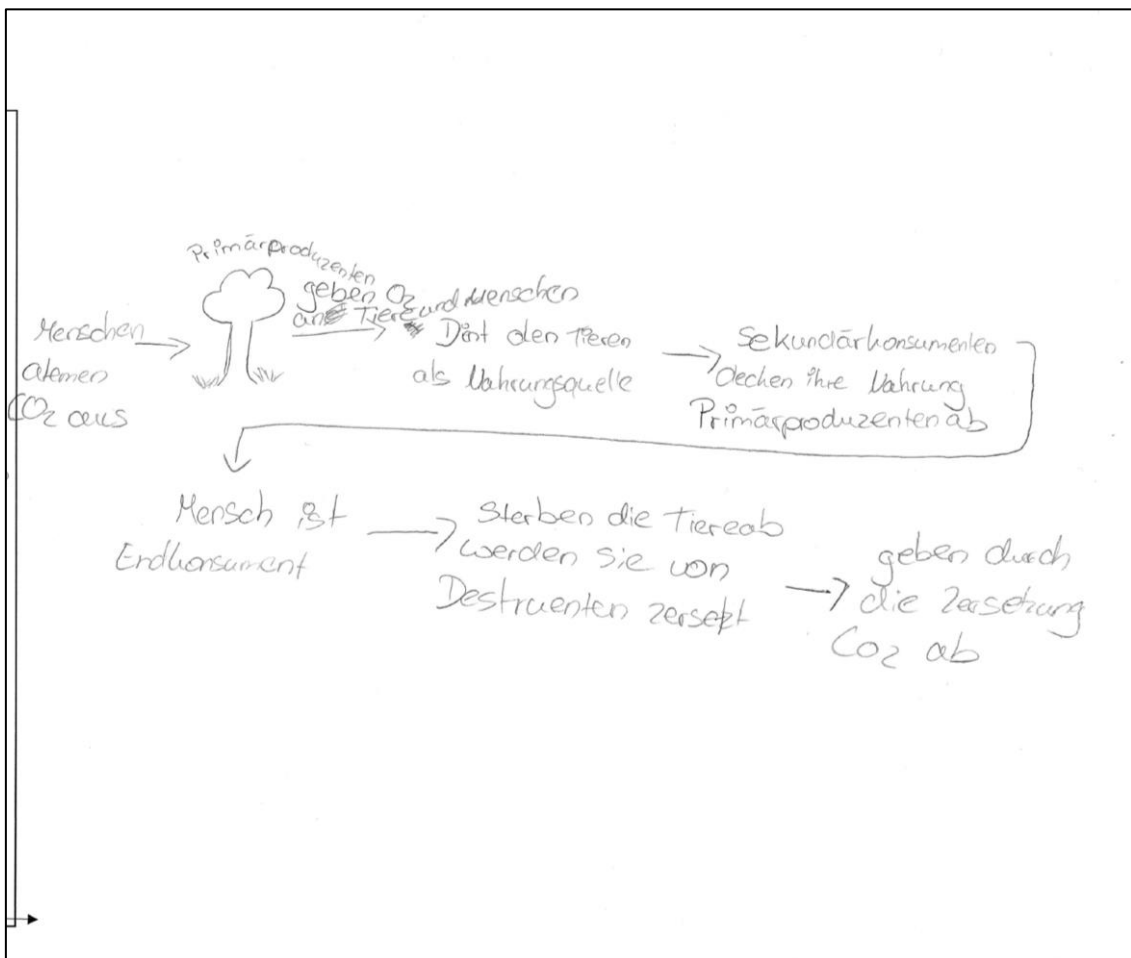 Primärproduzenten
geben O2
an Tiere und Menschen
Menschen
atmen
CO2 aus
Dint den Tieren
als Nahrungsquelle
Sekundärkonsumenten
decken ihre Nahrung
Primärproduzenten ab
Mensch ist
Endkonsument
Sterben die Tiere ab
werden sie von
Destruenten zersetzt
geben durch
die Zersetzung
CO2 ab